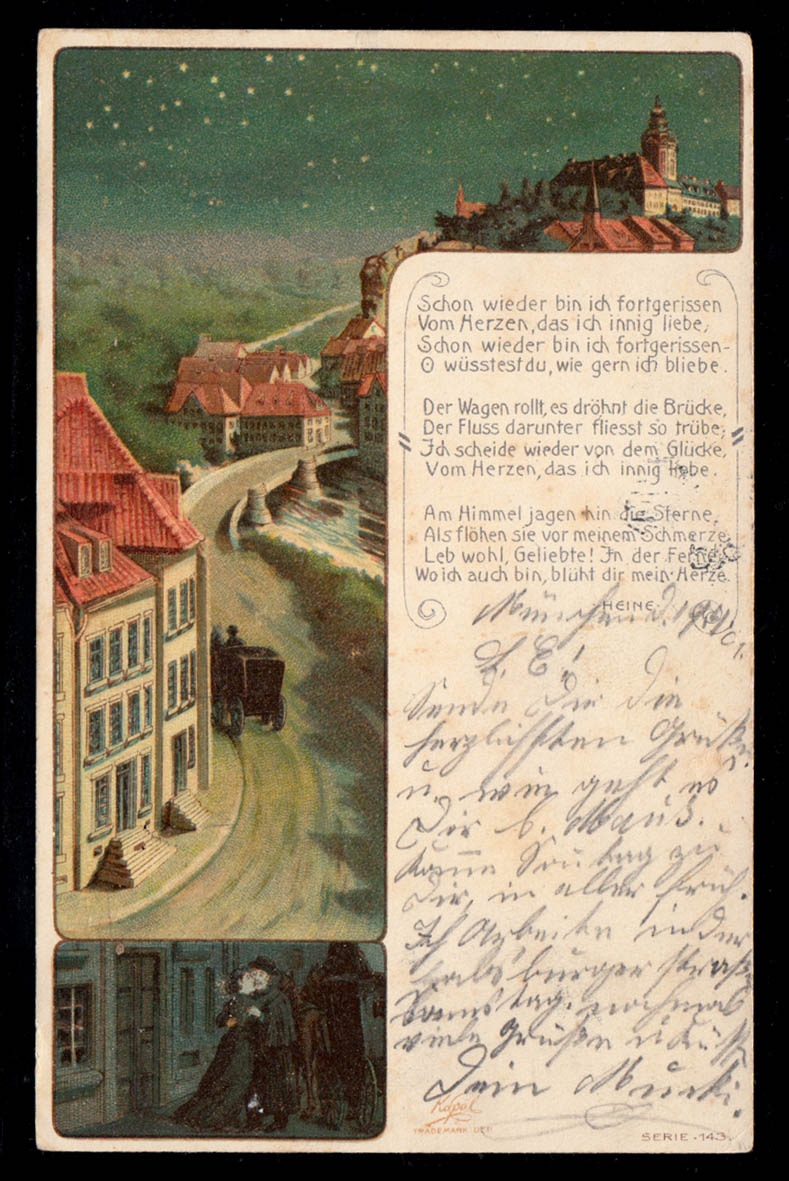 Schon wieder bin ich fortgerissen
Vom Herzen, das ich innig liebe,
Schon wieder bin ich fortgerissen-
O wüsstest du, wie gern ich bliebe.
Der Wagen rollt, es dröhnt die Brücke,
Der Fluss darunter fliesst so trübe;
Ich scheide wieder von dem Glücke,
Vom Herzen, das ich innig liebe.
Am Himmel jagen hin die Sterne,
Als flöhen sie vor meinem Schmerze
Leb wohl, Geliebte! In der Ferne,
Wo ich auch bin, blüht dir mein Herze.
HEINE.
München d.
L. E.!
Sende Dir die
herzlichsten Grüße
u. wie geht es
Dir b. Mauß.
Komme Sontag zu
Dir, in aller Früh.
Ich Arbeite in der
Habsburger straße
Samstag. nochmal
viele Grüße u Küße
Dein Mucki.
Kopal
TRADEMARK DEP.
SERIE - 143.